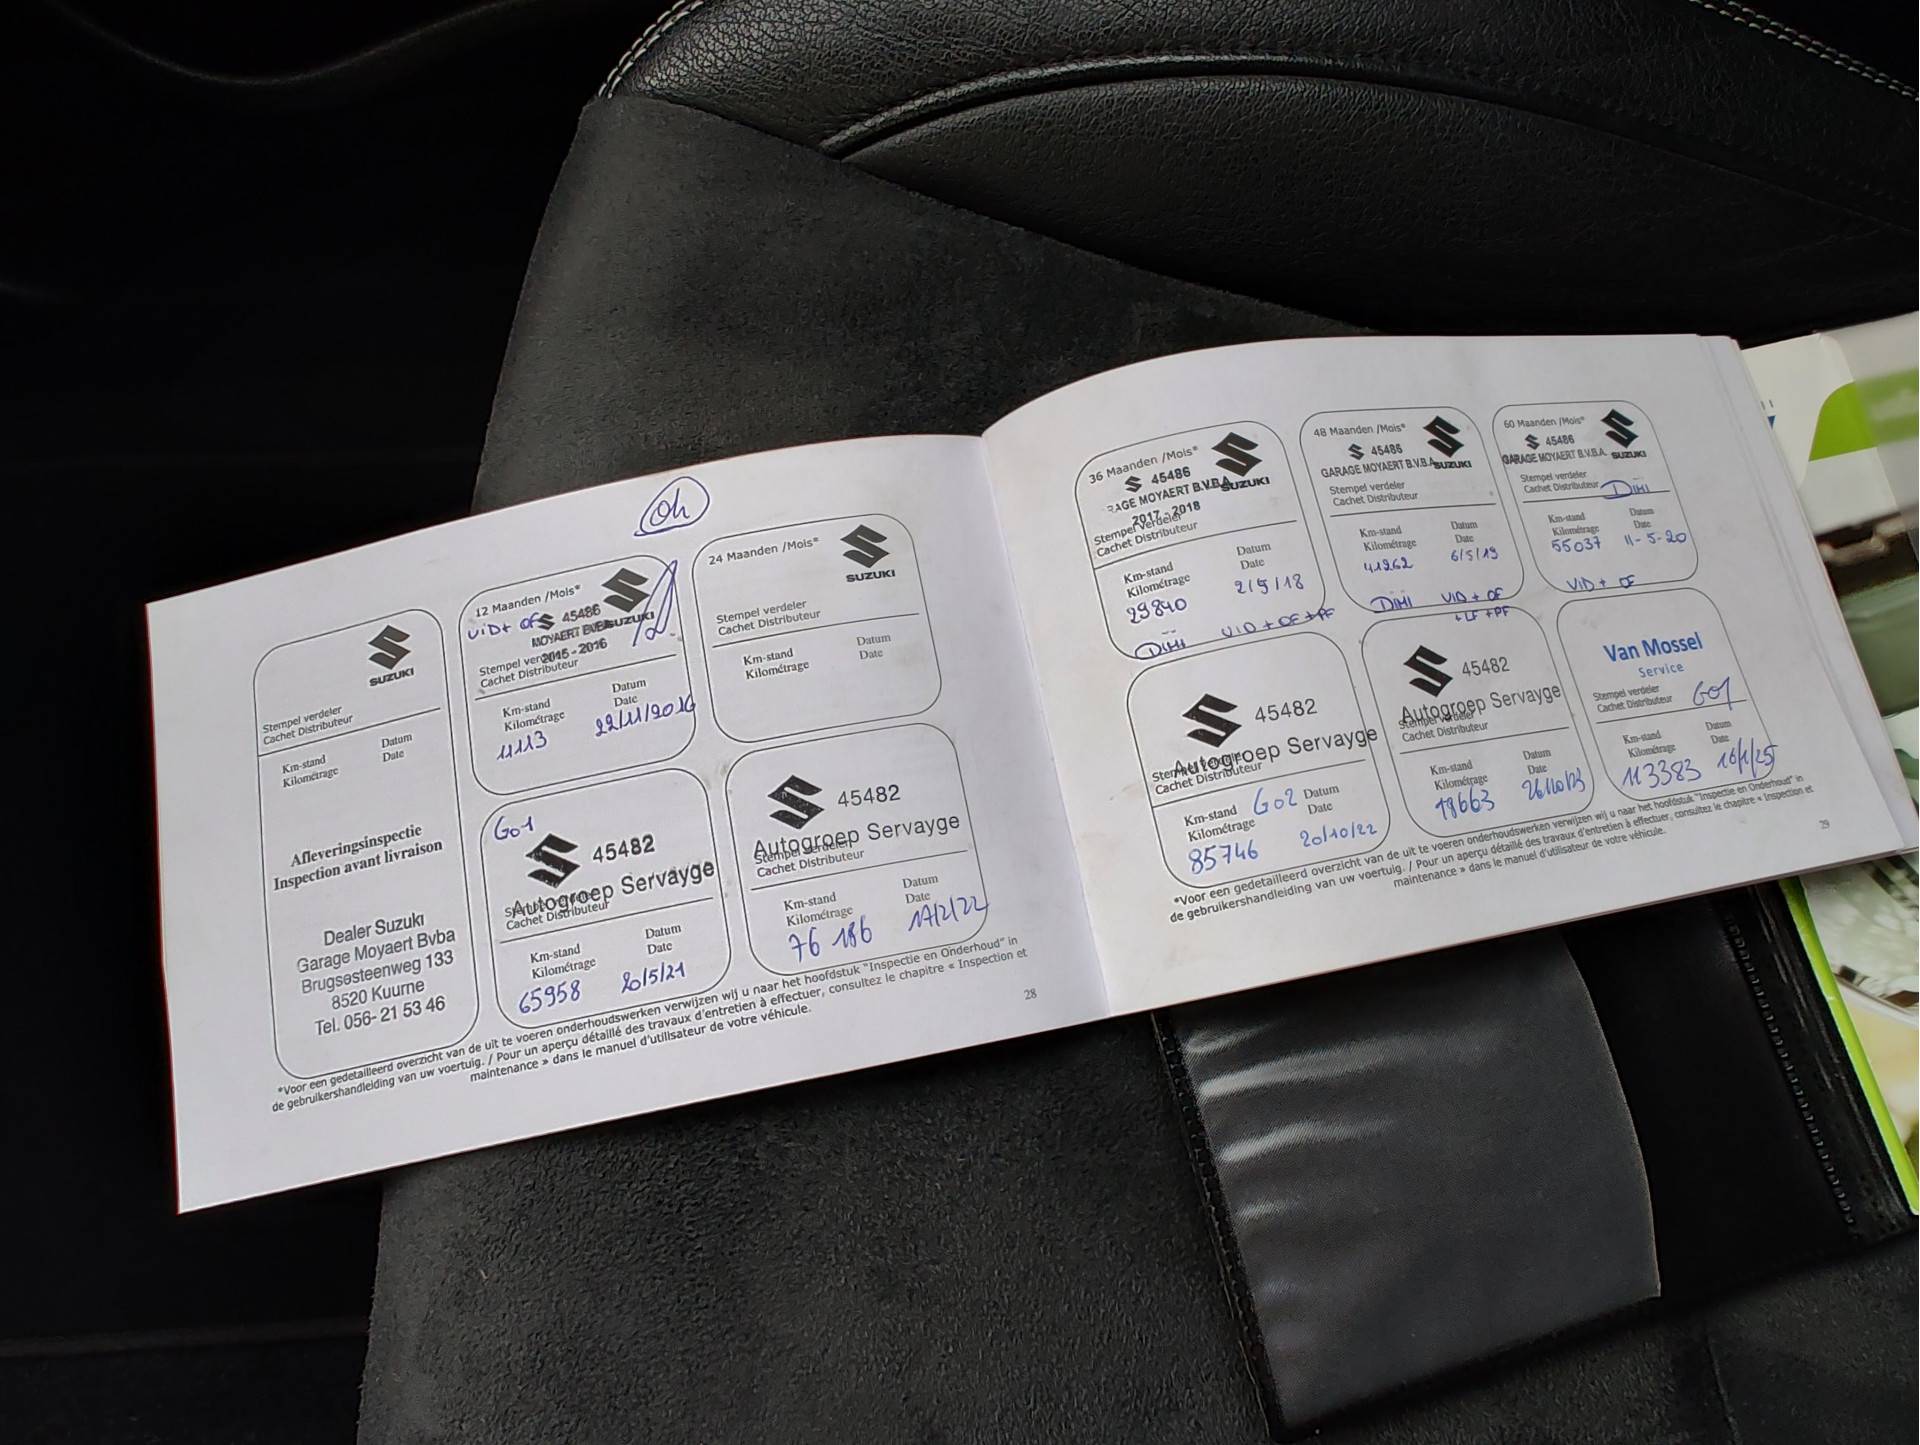 Oh
SUZUKI
Stempel verdeler
Cachet Distributeur
Km-stand Datum
Kilométrage Date
Afleveringsinspectie
Inspection avant livraison
Dealer Suzuki
Garage Moyaert Bvba
Brugsesteenweg 133
8520 Kuurne
Tel. 056- 21 53 46
12 Maanden /Mois*
ViD+ OF 45486
MOYAERT BVBA SUZUKI
2015 - 2016
Stempel verdeler
Cachet Distributeur
Km-stand Datum
Kilométrage Date
11113 22/11/2016
24 Maanden /Mois*
SUZUKI
Stempel verdeler
Cachet Distributeur
Km-stand Datum
Kilométrage Date
G01
45482
Autogroep Servayge
Cachet Distributeur
Km-stand Datum
Kilométrage Date
65958 20/5/21
45482
Autogroep Servayge
Stempel verdeler
Cachet Distributeur
Km-stand Datum
Kilométrage Date
76 186 17/2/22
*Voor een gedetailleerd overzicht van de uit te voeren onderhoudswerken verwijzen wij u naar het hoofdstuk "Inspectie en Onderhoud" in
de gebruikershandleiding van uw voertuig. / Pour un aperçu détaillé des travaux d'entretien à effectuer, consultez le chapitre « Inspection et
maintenance » dans le manuel d'utilisateur de votre véhicule.
28
36 Maanden /Mois*
45486
RAGE MOYAERT B.V.B.A. SUZUKI
2017 - 2018
Stempel verdeler
Cachet Distributeur
Km-stand Datum
Kilométrage Date
29840 2/5/18
DiMi ViD + OF + PF
48 Maanden /Mois*
45486
GARAGE MOYAERT B.V.B.A. SUZUKI
Stempel verdeler
Cachet Distributeur
Km-stand Datum
Kilométrage Date
41262 6/5/19
DiMi ViD + OF
+ LF + PF
60 Maanden /Mois*
45486
GARAGE MOYAERT B.V.B.A. SUZUKI
Stempel verdeler
Cachet Distributeur DiMi
Km-stand Datum
Kilométrage Date
55037 11-5-20
ViD + OF
45482
Autogroep Servayge
Cachet Distributeur
Km-stand G02 Datum
Kilométrage Date
85746 20/10/22
45482
Autogroep Servayge
Stempel verdeler
Cachet Distributeur
Km-stand Datum
Kilométrage Date
26/10/23
Van Mossel
Service
Stempel verdeler
Cachet Distributeur G01
Km-stand Datum
Kilométrage Date
113383 16/1/25
*Voor een gedetailleerd overzicht van de uit te voeren onderhoudswerken verwijzen wij u naar het hoofdstuk "Inspectie en Onderhoud" in
de gebruikershandleiding van uw voertuig. / Pour un aperçu détaillé des travaux d'entretien à effectuer, consultez le chapitre « Inspection et
maintenance » dans le manuel d'utilisateur de votre véhicule.
29